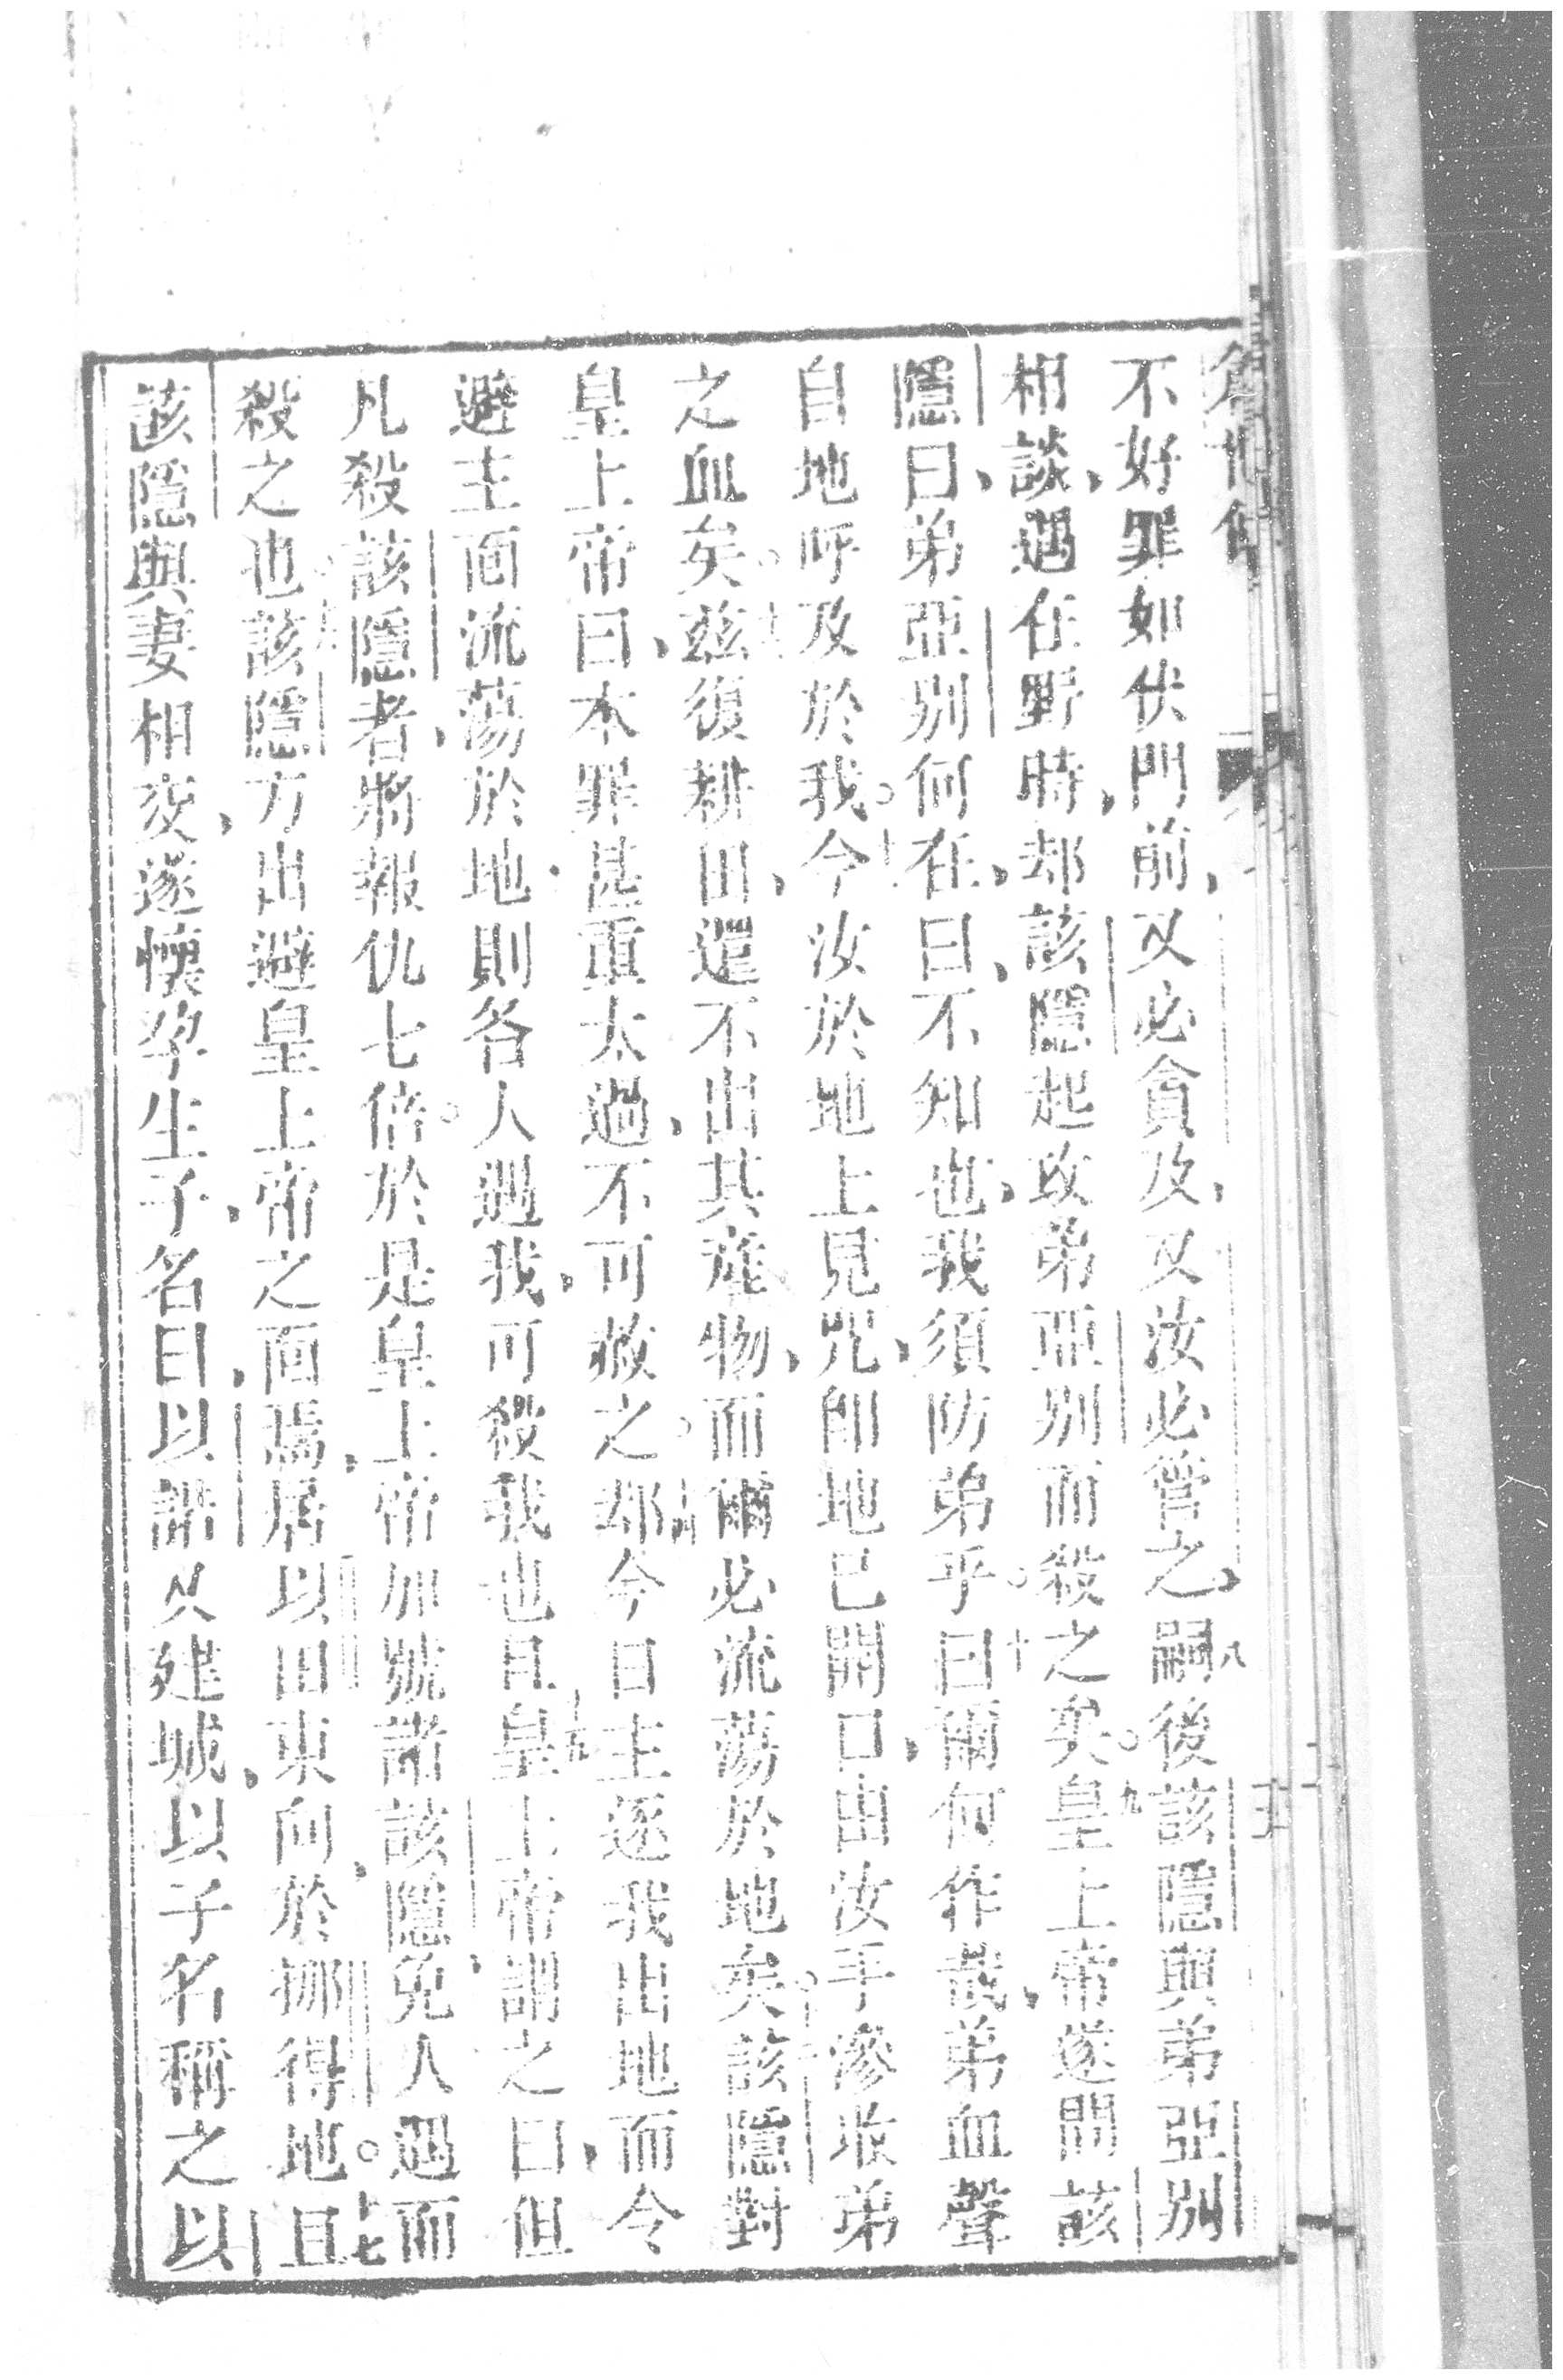 不好罪如伏門前、又必貪及、又汝必管之、八嗣後該隱與弟亞別
相談、遇在野時、却該隱起攻弟亞別而殺之矣。九皇上帝遂問該
隱曰、弟亞別何在、曰、不知也、我須防弟乎。十曰爾何作哉、弟血聲
自地呼及於我。今汝於地上見咒、卽地已開口、由汝手滲收弟
之血矣。茲復耕田、還不出其產物、而爾必流蕩於地矣。該隱對
皇上帝曰、本罪甚重太過、不可赦之。却今日主逐我出地而令
避主面流蕩於地、則各人遇我、可殺我也且皇上帝謂之曰、但
凡殺該隱者、將報仇七倍。於是皇上帝加號諸該隱、免人遇而
殺之也。該隱方出避皇上帝之面焉、居以田東向於、挪得地。十七且
該隱與妻相交、遂懷孕生子、名曰、以諾又建城、以子名稱之以